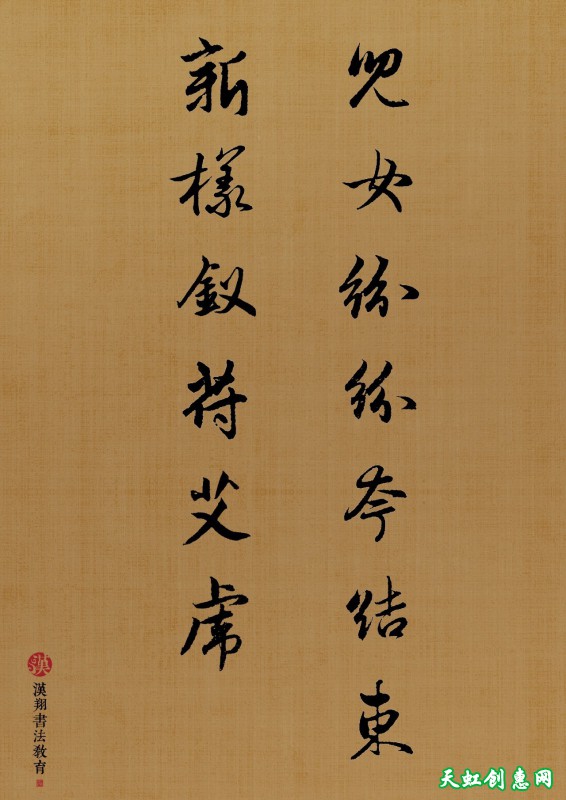 兒女紛紛夸結束
新樣釵符艾虎
漢翔書法教育
天虹创惠网